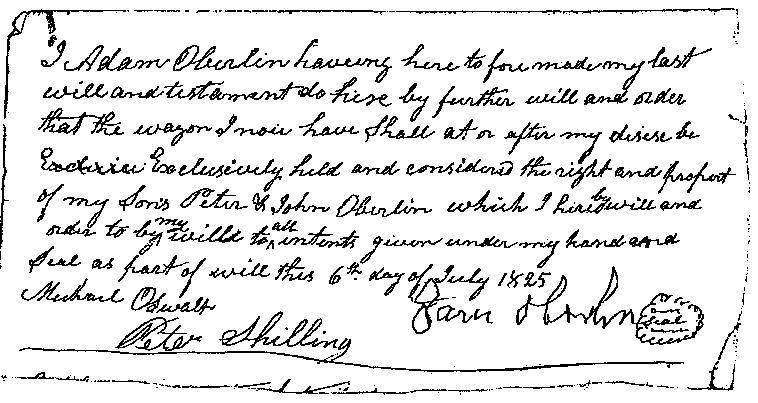 I Adam Oberlin haveing here to fore made my last
will and testament do here by further will and order
that the wagon I now have shall at or after my disese be
Exclusively held and considered the right and propert
of my Sons Peter & John Oberlin which I hereby will and
order to by my willd to all intents given under my hand and
Seal as part of will this 6th day of July 1825
Michael Oswalt
Oberlin
Seal
Peter Shilling